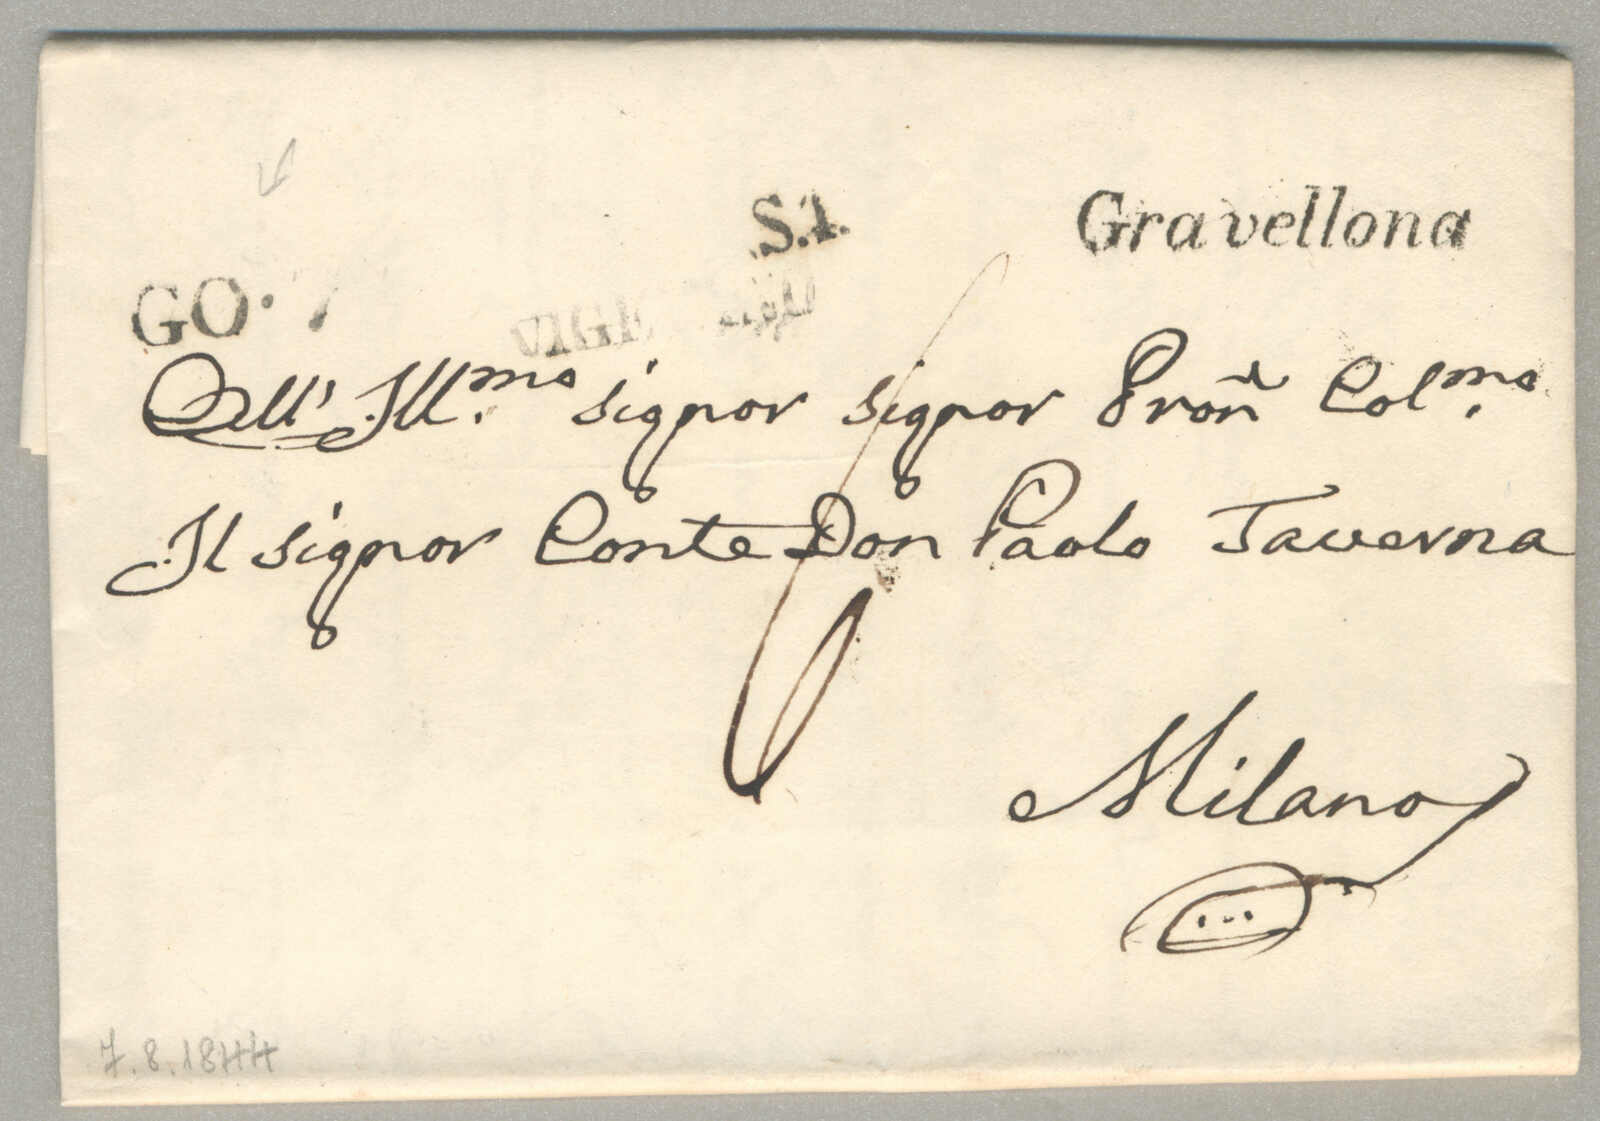 S.1.
Gravellona
GO. 7
VIGE
Dell' Ill.mo Signor Signor Pron Col.mo
Il Signor Conte Don Paolo Taverna
Milano
7.8.1844